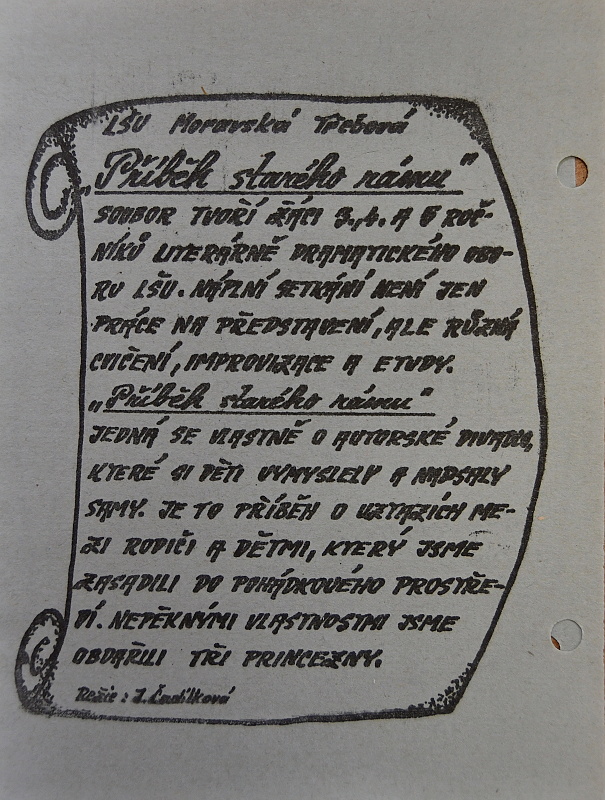 LŠU Moravská Třebová
„Příběh starého rámu"
SOUBOR TVOŘÍ ŽÁCI 3.,4. A 5 ROČ-
NÍKŮ LITERÁRNĚ DRAMATICKÉHO OBO-
RU LŠU. NÁPLNÍ SETKÁNÍ NENÍ JEN
PRÁCE NA PŘEDSTAVENÍ, ALE RŮZNÁ
CVIČENÍ, IMPROVIZACE A ETUDY.
„Příběh starého rámu"
JEDNÁ SE VLASTNĚ O AUTORSKÉ DIVADLO,
KTERÉ SI DĚTI VYMYSLELY A NADSALY
SAMY. JE TO PŘÍBĚH O VZTAZÍCH ME-
ZI RODIČI A DĚTMI, KTERÝ JSME
ZASADILI DO POHÁDKOVÉHO PROSTŘE-
DÍ. NEPĚKNÝMI VLASTNOSTMI JSME
OBDAŘILI TŘI PRINCEZNY.
Režie : J.